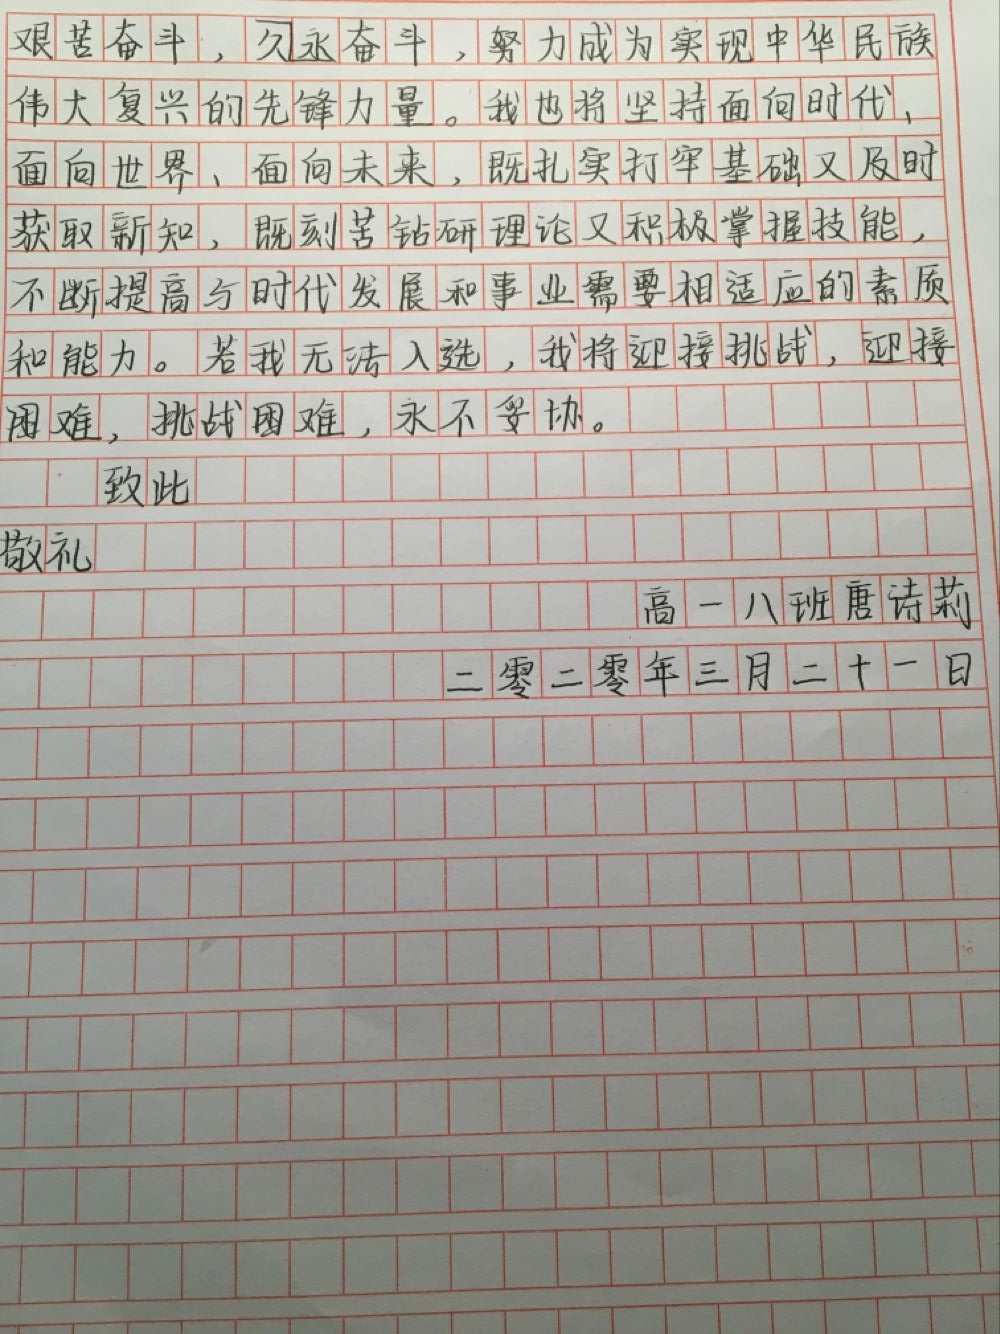 艰苦奋斗，久永奋斗，努力成为实现中华民族
伟大复兴的先锋力量。我也将坚持面向时代、
面向世界、面向未来，既扎实打牢基础又及时
获取新知，既刻苦钻研理论又积极掌握技能，
不断提高与时代发展和事业需要相适应的素质
和能力。若我无法入选，我将迎接挑战，迎接
困难，挑战困难，永不妥协。
致此
敬礼
高一八班唐诗莉
二零二零年三月二十一日